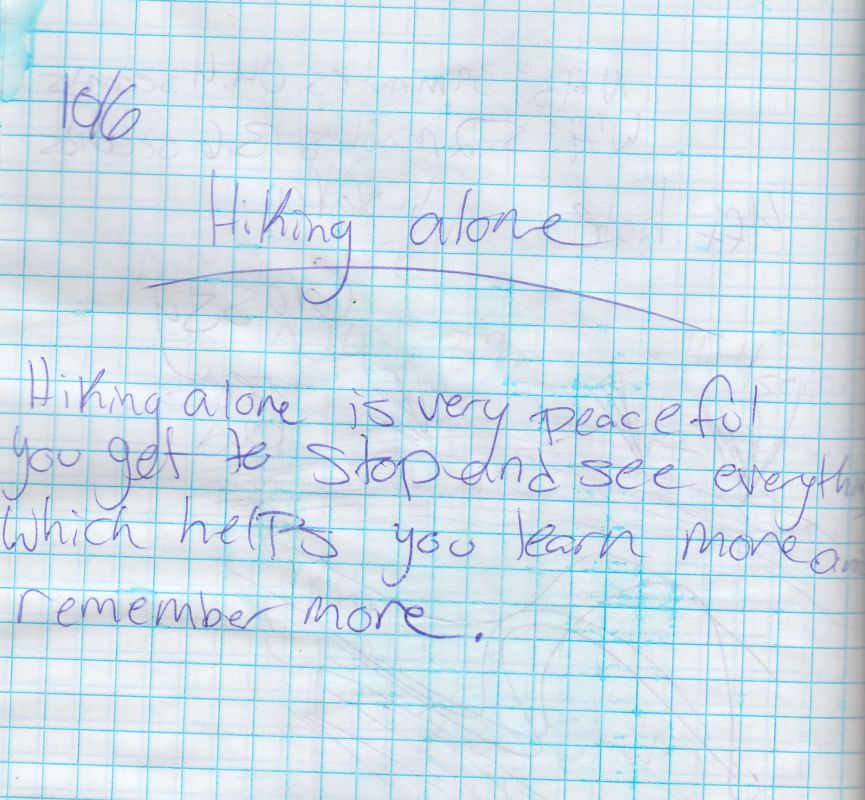 10/6
Hiking alone
Hiking alone is very peaceful
you get to stop and see everyth
which helps you learn more an
remember more.